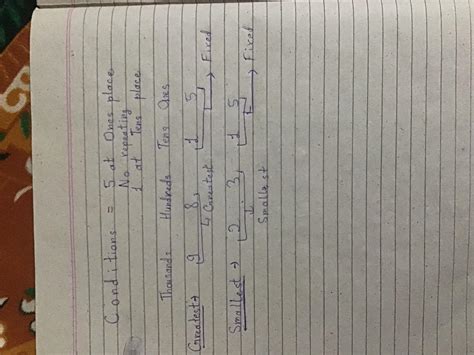 Conditions = 5 at Ones place
No repeating
1 at Tens place
Thousands Hundreds Tens Ones
Greatest → 9 8, 1 5 → Fixed
↳ Greatest
Smallest → 2 3, 1 5 → Fixed
Smallest